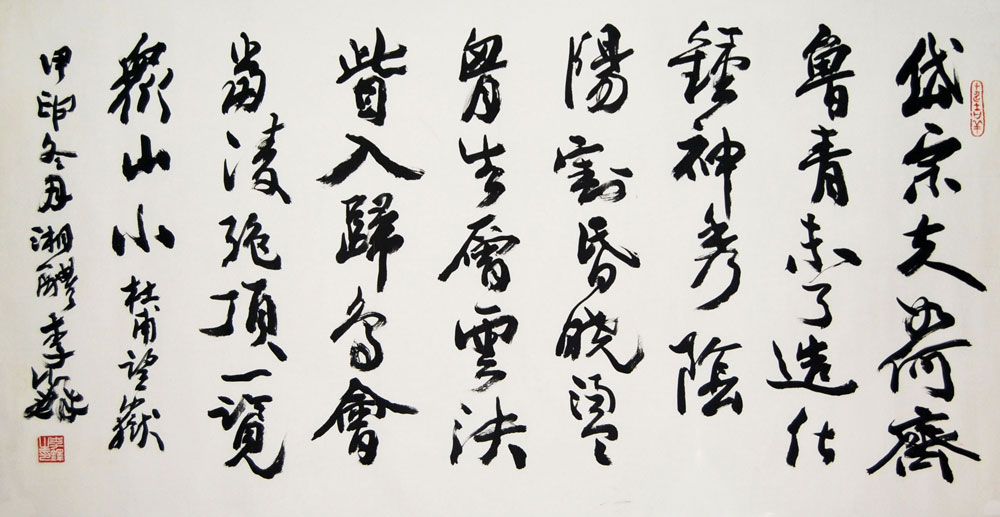 岱宗夫如何齊
魯青未了造化
鍾神秀陰
陽割昏曉盪
胷生層雲決
眥入歸鳥會
當凌絕頂一覽
衆山小 杜甫望嶽
甲申冬月湘醴李